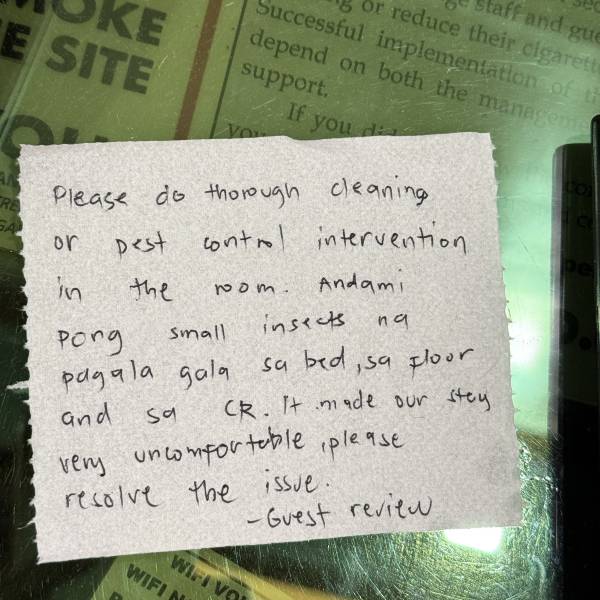 OKE
E SITE
staff and gue
or reduce their cigarette
Successful implementation of th
depend on both the manageme
support.
If you did
Please do thorough cleaning
or pest control intervention
in the room. Andami
pong small insects na
pagala gala sa bed, sa floor
and sa CR. It made our stay
very uncomfortable, please
resolve the issue.
-Guest review
WIFI VO
WIFI N